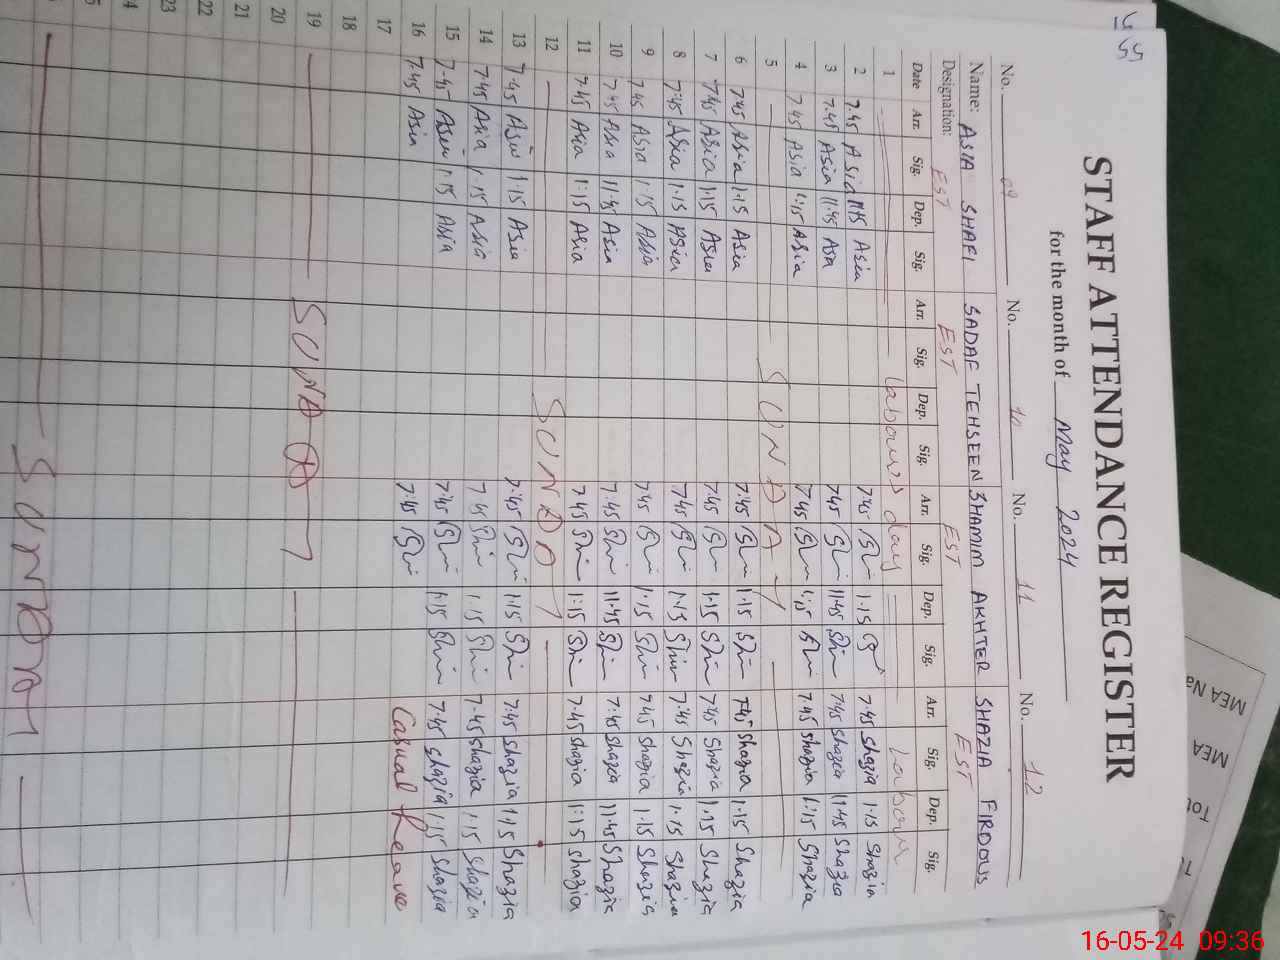 STAFF ATTENDANCE REGISTER
for the month of May 2024
No. 09 No. 10 No. 11 No. 12
Name: ASIA SHAFI SADAF TEHSEEN SHAMIM AKHTER SHAZIA FIRDOUS
Designation: EST EST EST EST
Date Arr. Sig. Dep. Sig. Arr. Sig. Dep. Sig. Arr. Sig. Dep. Sig. Arr. Sig. Dep. Sig.
1 Labours day Labour
2 7.45 Asia 11.45 Asia 7:45 1.15 7:45 Shazia 1.15 Shazia
3 7.45 Asia 11.45 Asa 7:45 11.45 7:45 Shazia 11.45 Shazia
4 7.45 Asia 1:15 Asia 7.45 1:15 7.45 Shazia 1:15 Shazia
5 SUNDAY
6 7.45 Asia 1.15 Asia 7:45 1.15 7.45 Shazia 1.15 Shazia
7 7.45 Asia 1.15 Asia 7.45 1.15 7.45 Shazia 1.15 Shazia
8 7:45 Asia 1.15 Asia 7:45 1.15 7:45 Shazia 1.15 Shazia
9 7.45 Asia 1.15 Asia 7:45 1.15 7.45 Shazia 1.15 Shazia
10 7.45 Asia 11.45 Asia 7:45 11.45 7:45 Shazia 11.45 Shazia
11 7.45 Asia 1:15 Asia 7.45 1:15 7.45 Shazia 1:15 Shazia
12 SUNDAY
13 7.45 Asia 1.15 Asia 7:45 1.15 7:45 Shazia 1.15 Shazia
14 7.45 Asia 1.15 Asia 7.45 1.15 7.45 Shazia 1.15 Shazia
15 7.45 Asia 1.15 Asia 7:45 1:15 7:45 Shazia 1:15 Shazia
16 7.45 Asia 7:45 Casual Leave
17
18
19 SUNDAY
20
21
22
23
SUNDAY
MEA Na
MEA
Tot
16-05-24 09:36